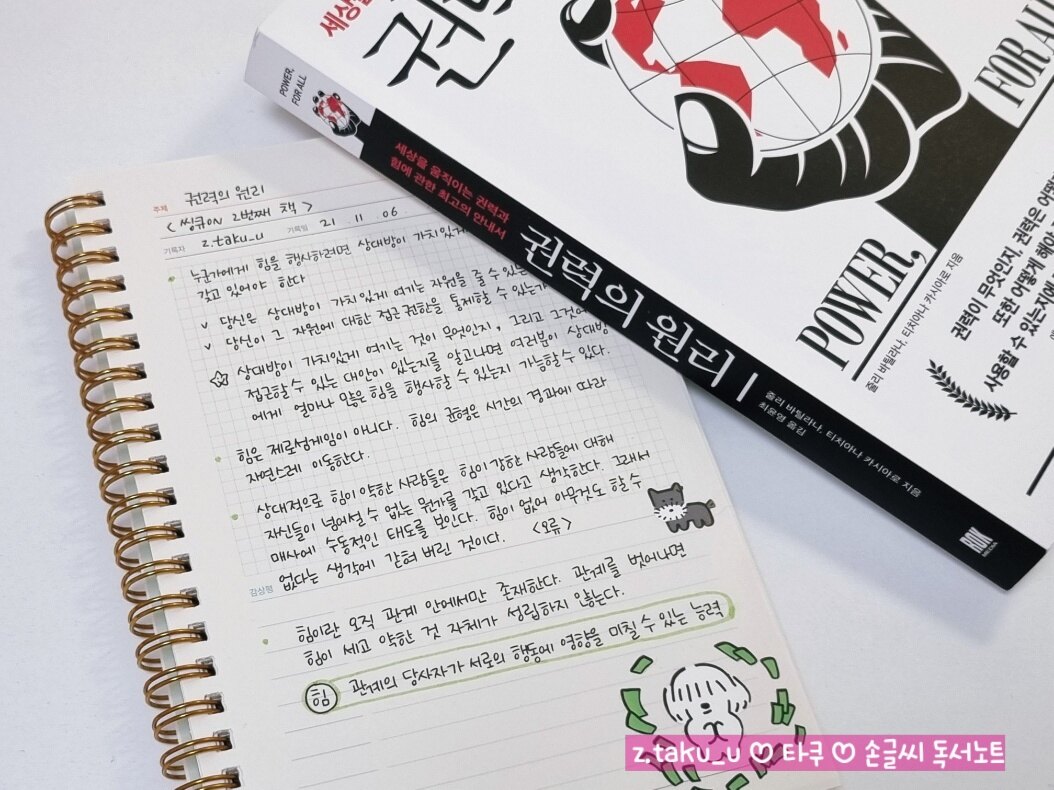 주제 권력의 원리
< 씽큐ON 2번째 책 >
기록자 z.taku_u 기록일 21. 11. 06.
누군가에게 힘을 행사하려면 상대방이 가치있게
갖고 있어야 한다
v 당신은 상대방이 가치있게 여기는 자원을 줄 수 있는
v 당신이 그 자원에 대한 접근 권한을 통제할 수 있는가
상대방이 가치있게 여기는 것이 무엇인지, 그리고 그것에
접근할 수 있는 대안이 있는지를 알고나면 여러분이 상대방
에게 얼마나 많은 힘을 행사할 수 있는지 가늠할 수 있다.
힘은 제로섬게임이 아니다. 힘의 균형은 시간의 경과에 따라
자연스레 이동한다.
상대적으로 힘이 약한 사람들은 힘이 강한 사람들에 대해
자신들이 넘어설 수 없는 뭔가를 갖고 있다고 생각한다. 그래서
매사에 수동적인 태도를 보인다. 힘이 없어 아무것도 할 수
없다는 생각에 갇혀 버린 것이다. <오류>
감상평
힘이란 오직 관계 안에서만 존재한다. 관계를 벗어나면
힘이 세고 약한 것 자체가 성립하지 않는다.
힘 관계의 당사자가 서로의 행동에 영향을 미칠 수 있는 능력
POWER,
FOR ALL
세상을 움직이는 권력과
힘에 관한 최고의 안내서
권력의 원리
줄리 바틸라나, 티치아나 카시아로 지음
최윤영 옮김
RHK
세상을
권력
POWER,
FOR ALL
줄리 바틸라나, 티치아나 카시아로 지음
권력이 무엇인지, 권력은 어떻
또한 어떻게 해야
사용할 수 있는지에
z.taku_u ♡ 타쿠 ♡ 손글씨 독서노트